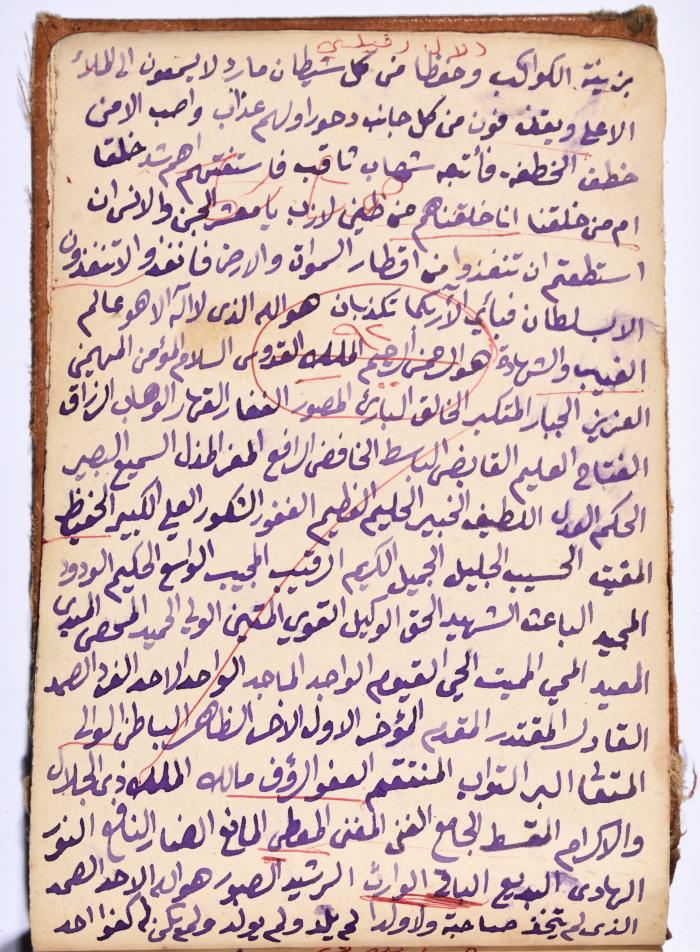 بزينة الكواكب وحفظا من كل شيطان مارد لا يسمعون الى الملاء
الاعلى ويقذفون من كل جانب دحورا ولهم عذاب واصب الا من
خطف الخطفة فأتبعه شهاب ثاقب فاستفتهم اهم شد خلقا
ام من خلقنا انا خلقناهم من طين لازب يا معشر الجن والانس ان
استطعتم ان تنفذوا من اقطار السموات والارض فانفذوا لا تنفذون
الا بسلطان فبأي الآ ربكما تكذبان هو الله الذى لا اله الا هو عالم
الغيب والشهادة هو الرحمن الرحيم الملك القدوس السلام المؤمن المهيمن
العزيز الجبار المتكبر الخالق البارئ المصور الغفار القهار الوهاب الرزاق
الفتاح العليم القابض الباسط الخافض الرافع المعز المذل السميع البصير
الحكم العدل اللطيف الخبير الحليم العظيم الغفور الشكور العلي الكبير الحفيظ
المقيت الحسيب الجليل الجميل الكريم الرقيب المجيب الواسع الحكيم الودود
المجيد الباعث الشهيد الحق الوكيل القوي المتين الولي الحميد المحصى المبدئ
المعيد المحي المميت الحي القيوم الواجد الماجد الواحد الاحد الفرد الصمد
القادر المقتدر المقدم المؤخر الاول الاخر الظاهر الباطن الوالى
المتعال البر التواب المنتقم العفو الرؤف مالك الملك ذى الجلال
والاكرام المقسط الجامع الغنى المغنى المعطى المانع الضار النافع النور
الهادى البديع الباقى الوارث الرشيد الصبور هو الله الاحد الصمد
الذى لم يتخذ صاحبة ولا ولدا لم يلد ولم يولد ولم يكن له كفوا احد